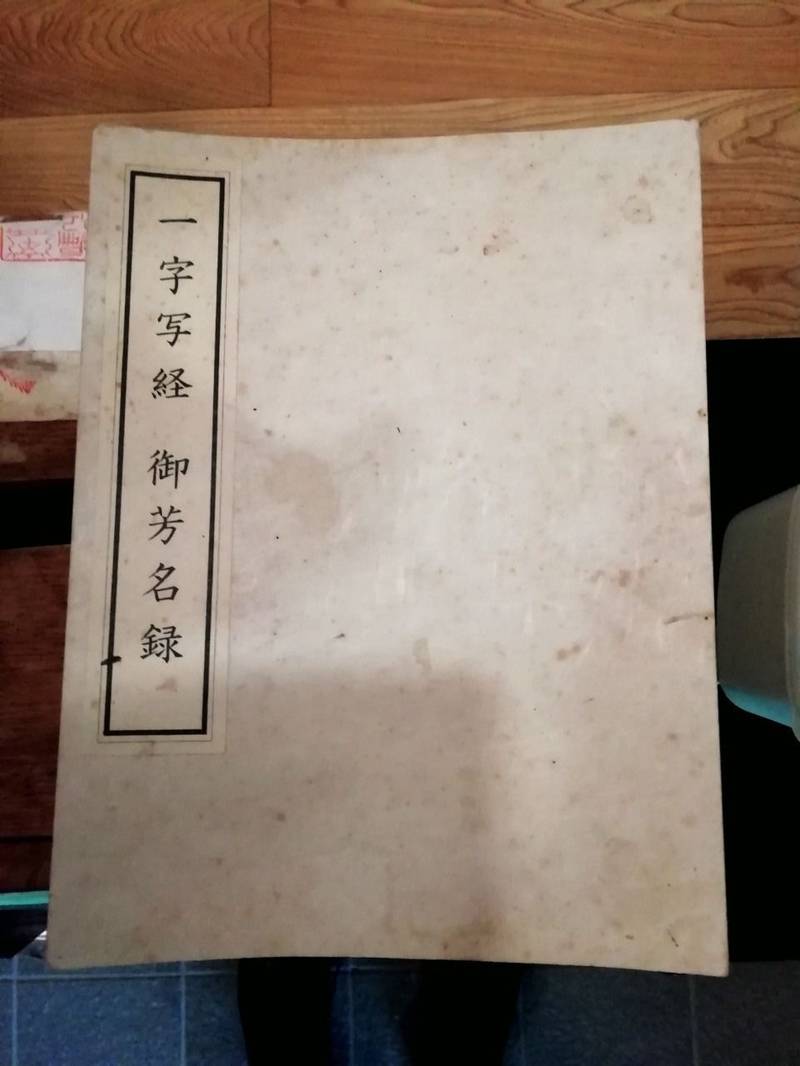 一字写経 御芳名録